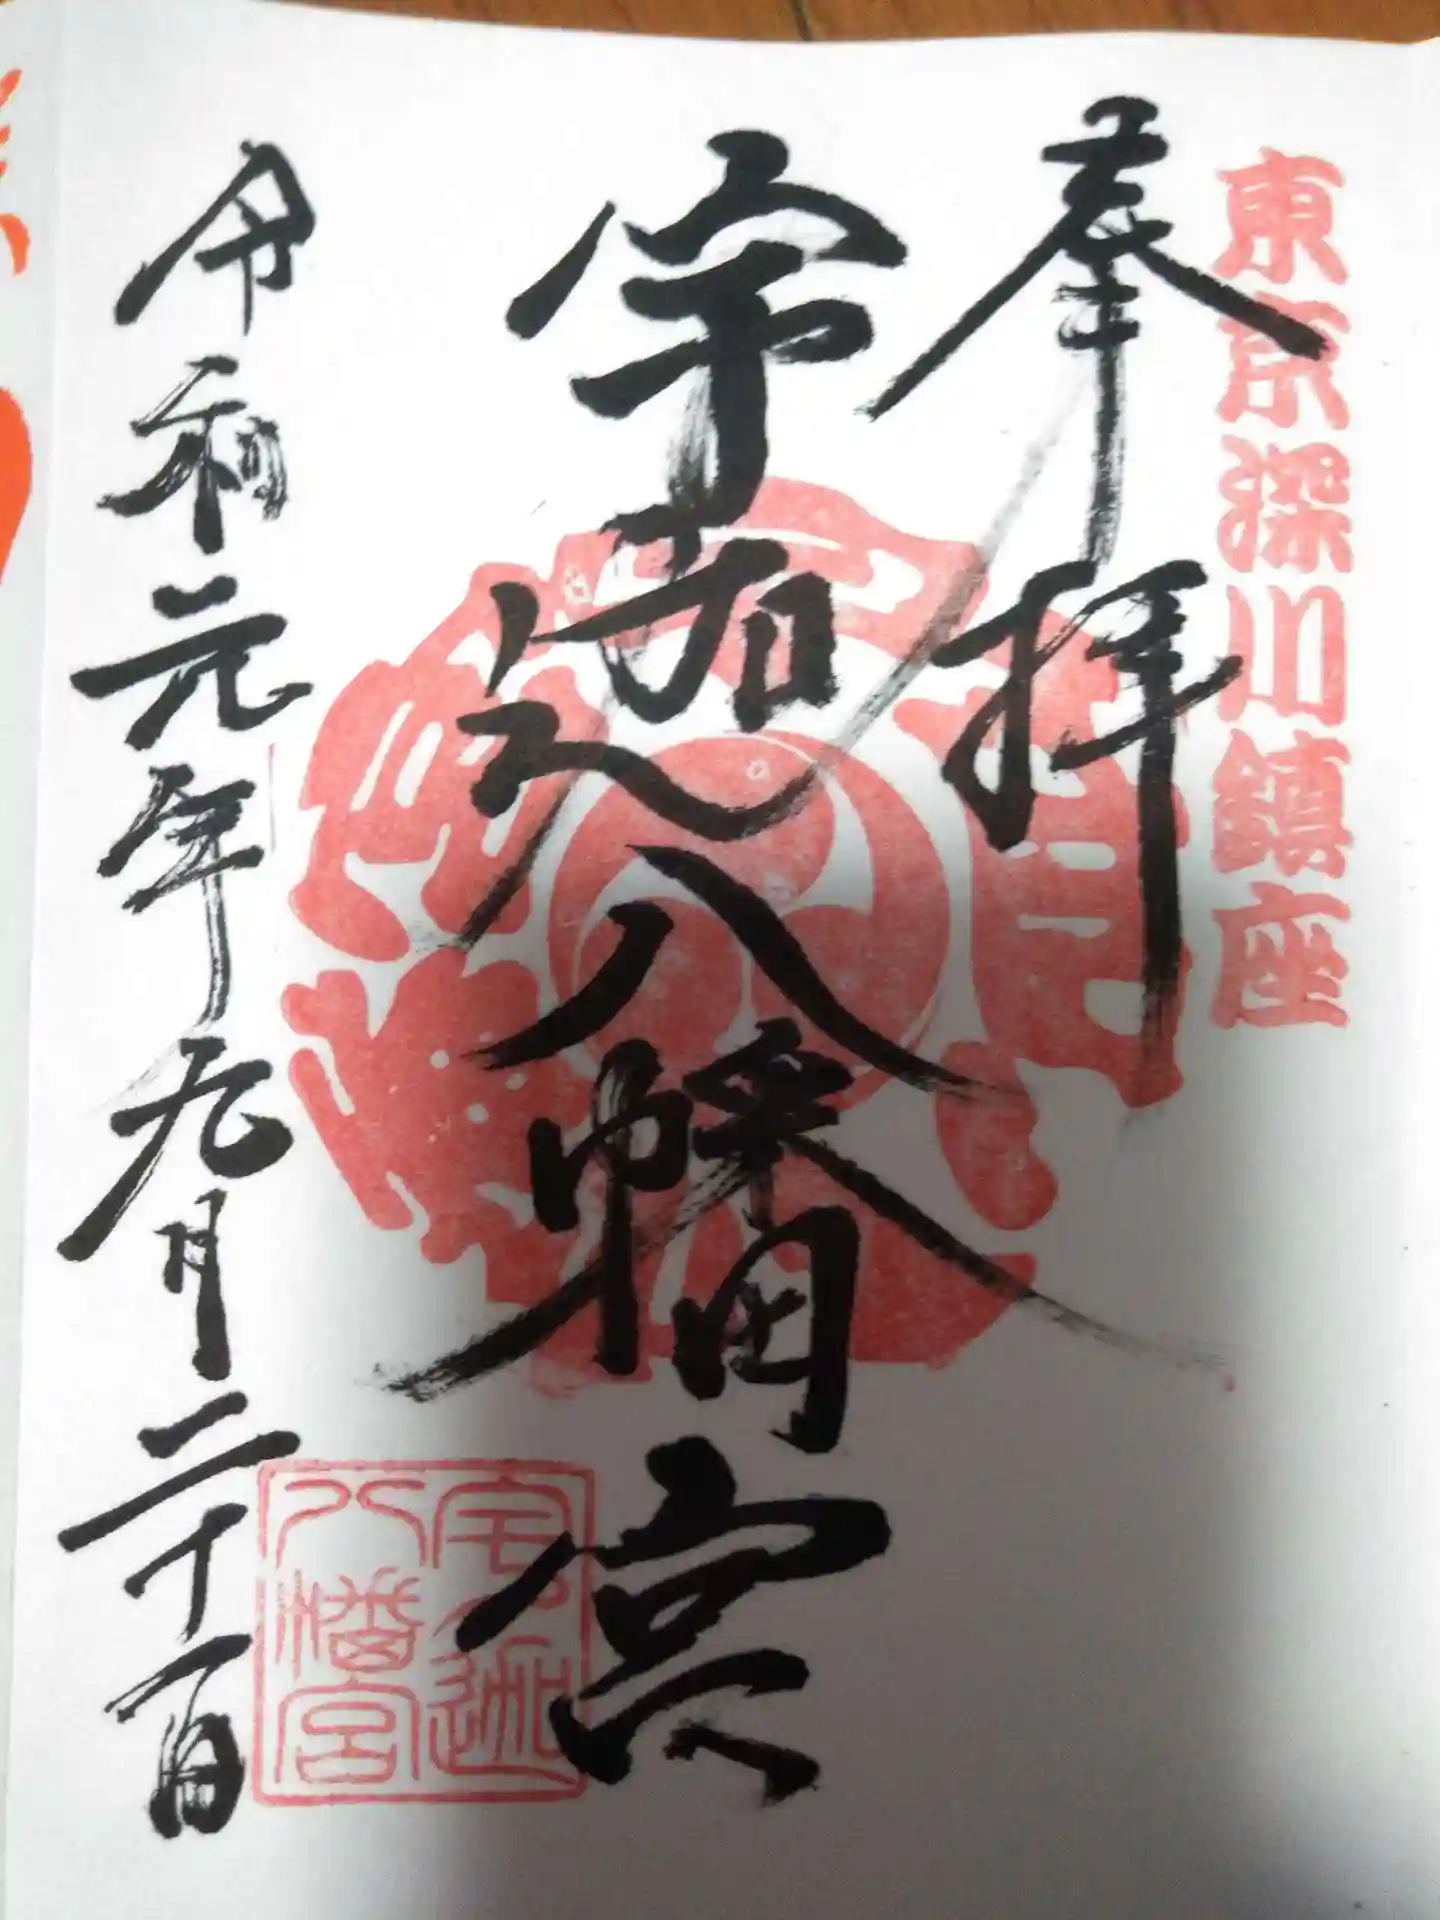 東京深川鎮座
奉拝
宇迦八幡宮
令和元年九月二十一日
宇迦
八幡宮